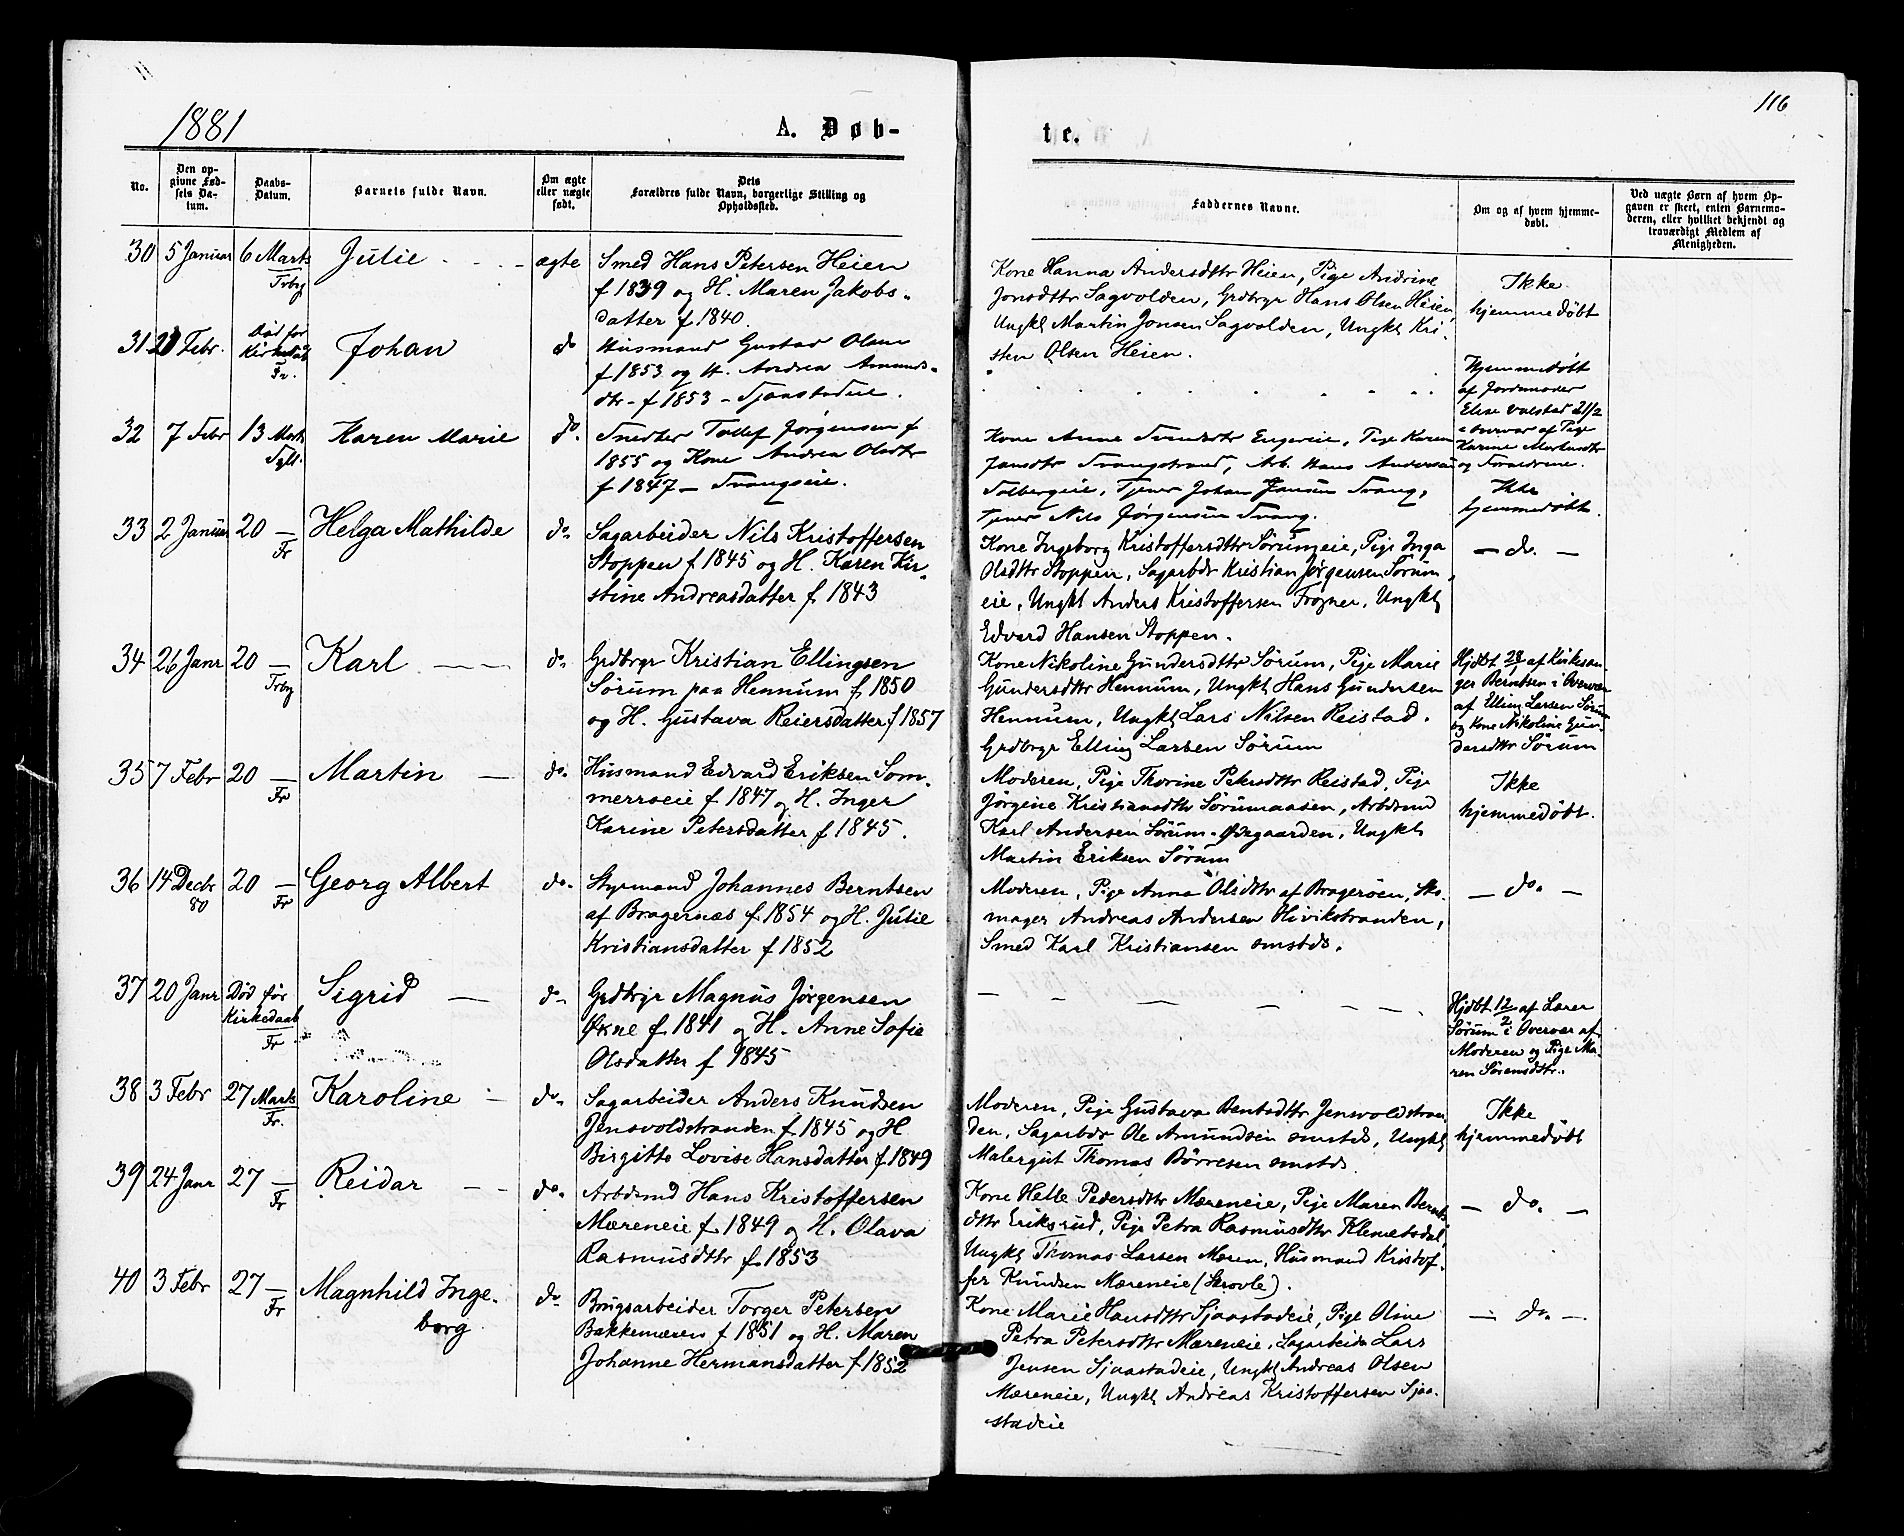 1881
A. Døb-
No.
Den op-
givne Fød-
sels Da-
tum.
Daabs-
Datum.
Barnets fulde Navn.
Om ægte
eller uægte
født.
Dets
Forældres fulde Navn, borgerlige Stilling og
Opholdssted.
30 5 Januar 6 Marts Julie ægte
Trby
Smed Hans Petersen Heien
f 1839 og H. Maren Jakobs-
datter f. 1840.
31 21 Febr. Død før Kirkedaab Fr. Johan do
Husmand Gustav Olsen
f 1853 og H. Andrea Amunds-
dtr f 1853 - Sjaastadeie.
32 7 Febr 13 Marts Syll. Karen Marie do.
Snedker Tollef Jørgensen f
1855 og Kone Andrea Olsdtr
f 1847 - Svangseie.
33 2 Januar 20 — Fr Helga Mathilde do.
Sagarbeider Nils Kristoffersen
Stoppen f 1845 og H. Karen Kir-
stine Andreasdatter f. 1843
34 26 Janr 20 — Trby Karl do.
Grdbrgr Kristian Ellingsen
Sørum paa Hennum f. 1850
og H. Gustava Reiersdatter f 1857
35 7 Febr 20 — Fr Martin do.
Husmand Edvard Eriksen Som-
merroeie f 1847 og H. Inger
Karine Petersdatter f 1845.
36 14 Decbr 80 20 — Fr Georg Albert do.
Styrmand Johannes Berntsen
af Bragernæs f. 1854 og H. Julie
Kristiansdatter f. 1852
37 20 Janr Død før Kirkedaab Fr Sigrid do.
Grdbrgr Magnus Jørgensen
Økne f. 1841 og H. Anne Sofie
Olsdatter f 1845
38 3 Febr 27 Marts Fr. Karoline do.
Sagarbeider Anders Knudsen
Jensvoldstranden f. 1845 og H
Birgitte Lovise Hansdatter f. 1849
39 24 Janr 27 — Fr Reidar do.
Arbdsmd Hans Kristoffersen
Mæreneie f. 1849 og H. Olava
Rasmusdtr f. 1853
40 3 Febr 27 — Fr Magnhild Inge-
borg do.
Brugsarbeider Torger Petersen
Bakkemæren f 1851 og H. Maren
Johanne Hermansdatter f 1852
116
te.
Faddernes Navne.
Om og af hvem hjemme-
døbt.
Ved uægte Børn af hvem Op-
gaven er skeet, enten Barnemo-
deren, eller hvilket bekjendt og
troværdigt Medlem af
Menigheden.
Kone Hanna Andersdttr Heien, Pige Andrine
Jonsdttr Sagvolden, Grdbrgr Hans Olsen Heien,
Ungkl Martin Jonsen Sagvolden, Ungkl Kri-
sten Olsen Heien.
Ikke
hjemmedøbt
Hjemmedøbt
af Jordemoder
Elise Valstad 21/2
i Overvær af Pige
Karine
og Forældrene.
Kone Anne Engereie, Pige Karen
Jansdtr Svangstrand, Arb. Hans Andersen
Solbergeie, Tjener Johan Jansen Svang,
Tjener Nils Jørgensen Svang.
Ikke
hjemmedøbt.
Kone Ingeborg Kristoffersdttr Sørumeie, Pige Inga
Olsdttr Stoppen, Sagarbdr Kristian Jørgensen Sørum-
eie, Ungkl Anders Kristoffersen Frogner, Ungkl
Edvard Hansen Stoppen.
— do. —
Kone Nikoline Gundersdttr Sørum, Pige Marie
Gundersdttr Hennum, Ungkl Hans Gundersen
Hennum, Ungkl Lars Nilsen Reistad.
Grdbrgr Elling Larsen Sørum
Hjdbt 28/1 af Kirkesan-
ger Berntsen i Overvær
af Elling Larsen Sørum
og Kone Nikoline Gun-
dersdttr Sørum
Moderen, Pige Thorine Pedersdttr Reistad, Pige
Jørgine Kristiansdttr Sørumaasen, Arbdsmd
Karl Andersen Sørum-Ødegaarden, Ungkl
Martin Eriksen Sørum
Ikke
hjemmedøbt.
Moderen, Pige Anna Olsdttr af Bragerøen, Sko-
mager Andreas Andersen Hvikstranden,
Smed Karl Kristiansen smstds.
— do. —
Hjdbt 12/2 af Lærer
Sørum i Overvær af
Moderen og Pige Ma-
ren Sørensdttr.
Moderen, Pige Gustava Berntsdttr Jensvoldstran-
den, Sagarbdr Ole Amundsen smstds, Ungkl
Malergut Thomas Børresen smstds.
Ikke
hjemmedøbt
Kone Helle Pedersdttr Mæreneie, Pige Maren Bernts-
dttr Eriksrud, Pige Petra Rasmusdttr Klemetsdal,
Ungkl Thomas Larsen Mæren, Husmand Kristof-
fer Knudsen Mæreneie (Skrovle).
— do. —
Kone Marie Hansdttr Sjaastadeie, Pige Oline
Petra Petersdttr Mæreneie, Sagarbeider Lars
Jensen Sjaastadeie, Ungkl Andreas Olsen
Mæreneie, Ungkl Andreas Kristoffersen Sjaa-
stadeie
— do. —